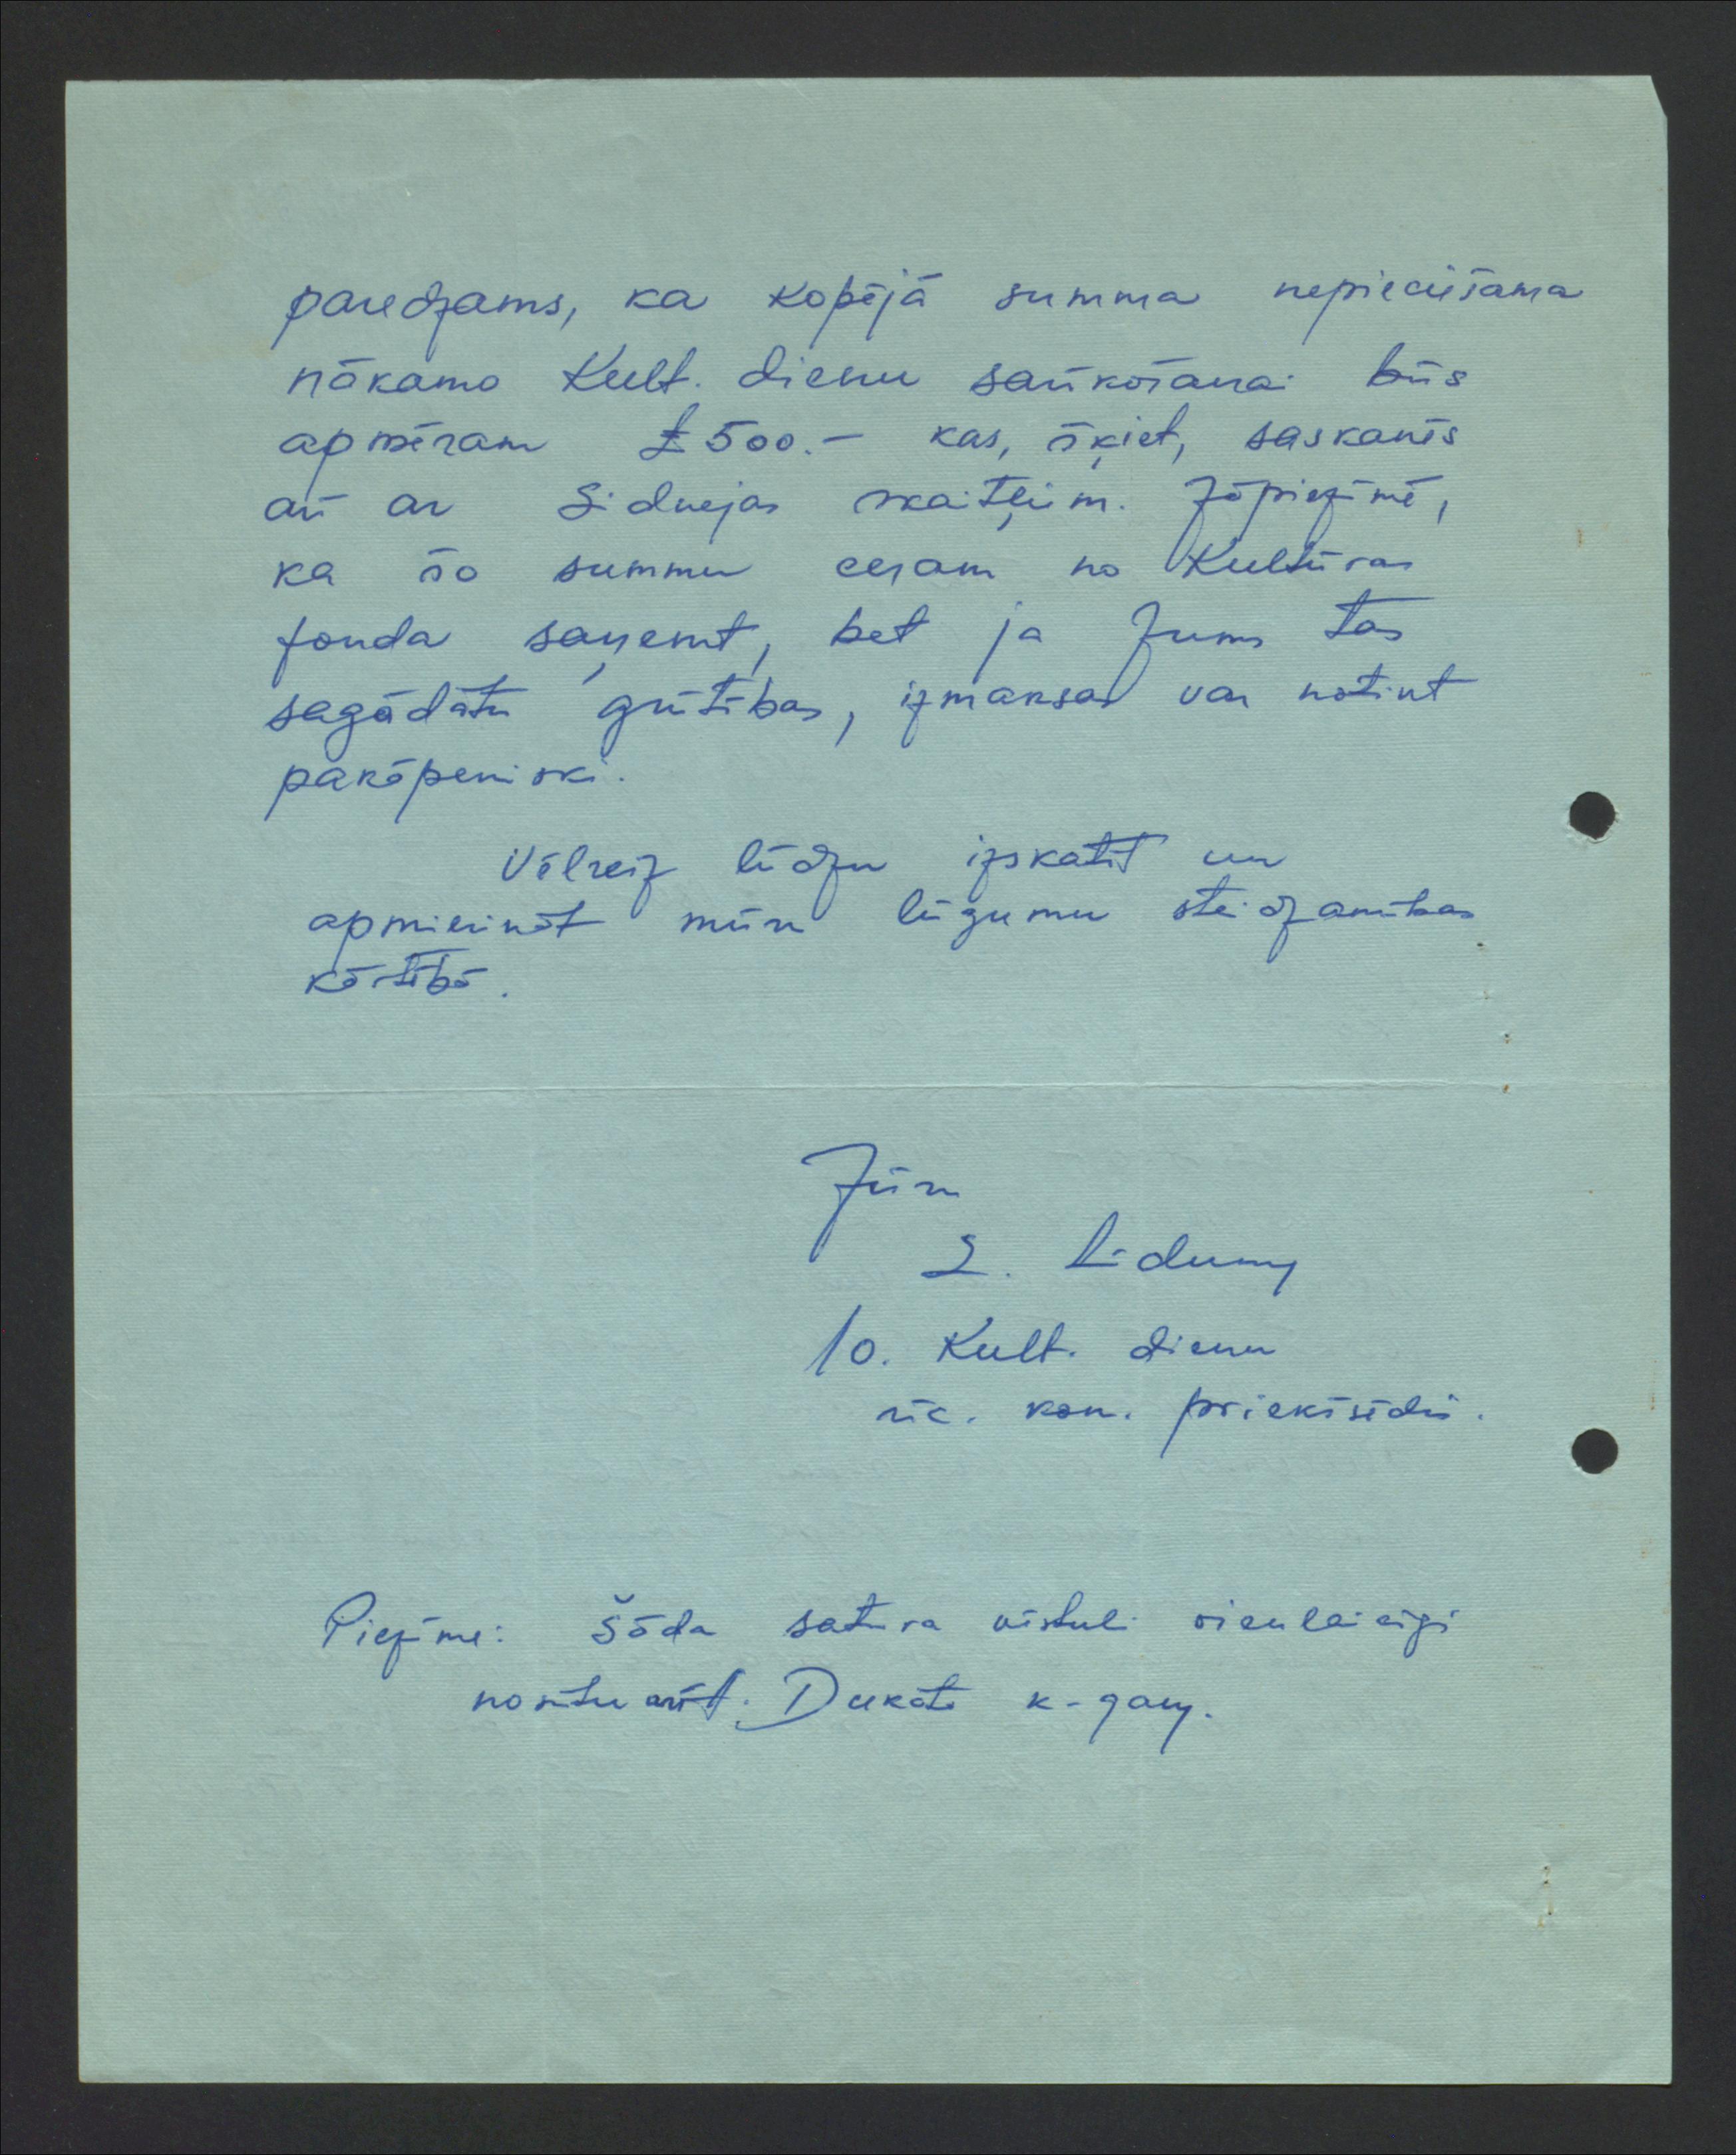 paredzams, ka kopējā summa nepieciešama
nākamo Kult. dienu sarīkošanai būs
apmēram £500.- kas, šķiet, saskanēs
arī ar Sidnejas skaitļiem. Jāpiezīmē,
ka šo summu ceram no Kultūras
fonda saņemt, bet ja Jums tas
sagādātu grūtības, izmaksas var notikt
pakāpeniski.
Vēlreiz lūdzu izskatīt un
apmierināt mūsu lūgumu steidzamības
kārtībā.
Jūsu
E. Līdums
10. Kult. dienu
rīc. kom. priekšsēdis.
Piezīme: Šāda satura vēstuli vienlaicīgi
nosūtu arī Dukāta k-gam.